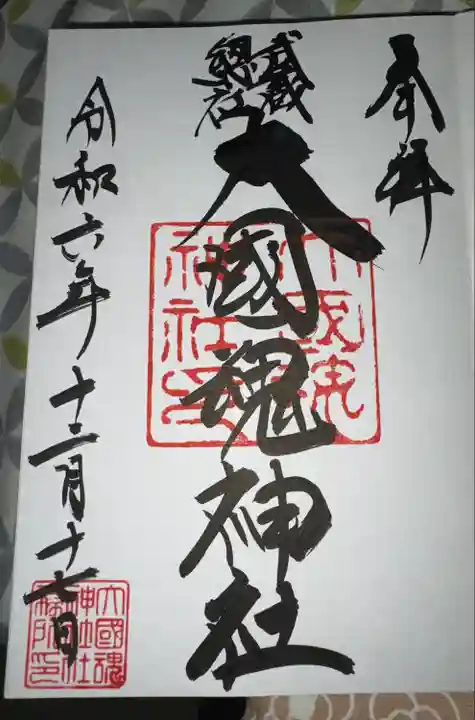 奉拝
武蔵
總社
大國魂神社
大國魂
神社印
令和六年十二月十七日
大國魂
神社社
務所印